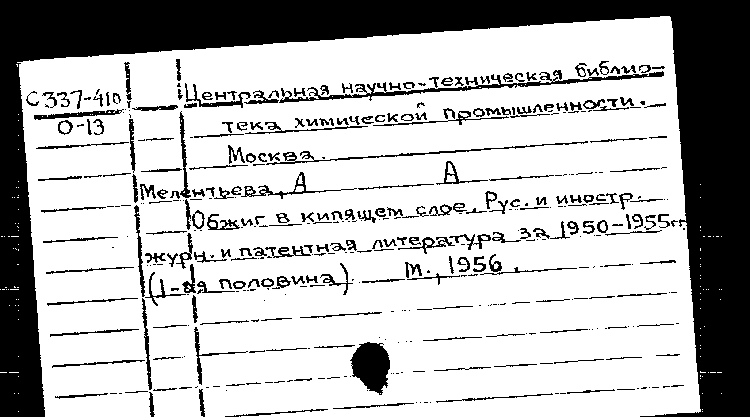 С337-410 Центральная научно-техническая библио-
О-13 тека химической промышленности.
Москва.
Мелентьева, А А
Обжиг в кипящем слое. Рус. и иностр.
журн. и патентная литература за 1950-1955гг.
(1-ая половина) М., 1956.